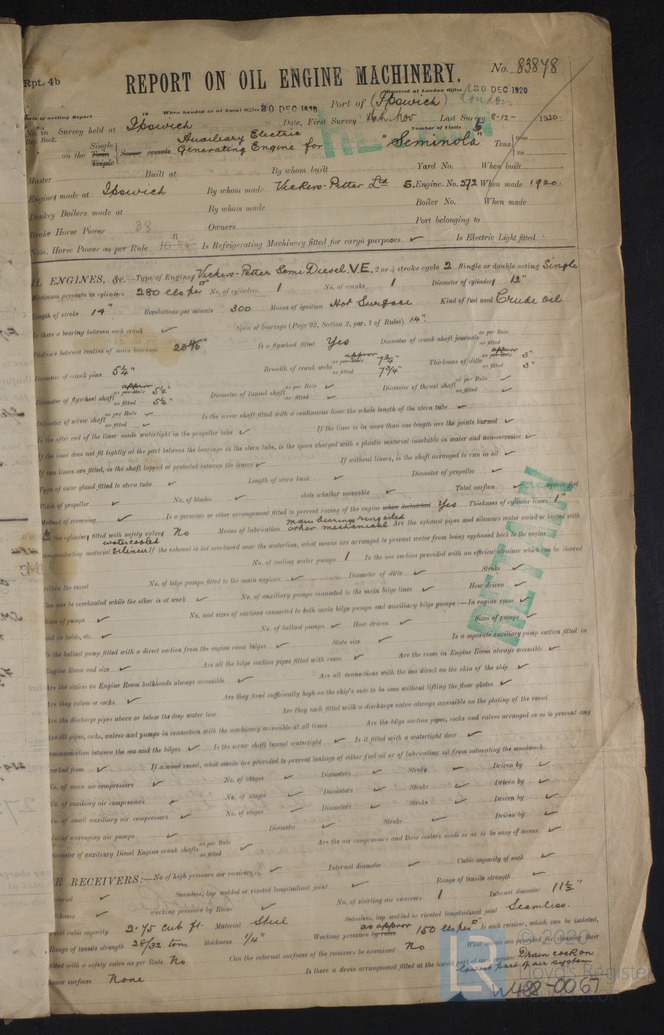 Rpt. 4b
No. 83878
REPORT ON OIL ENGINE MACHINERY.
Received at London Office 30 DEC 1920
When handed in at Local Office 30 DEC 1920 Port of (Ipswich) London
in Survey held at Ipswich Date, First Survey 16th Nov Last Survey 8-12- 1920
Number of Visits 5
on the Single Auxiliary Electric Generating Engine for "Seminole" Tons
Master Built at By whom built Yard No. When built
Engines made at Ipswich By whom made Vickers-Petter Ltd Engine No. 272 When made 1920.
Donkey Boilers made at By whom made Boiler No. When made
Brake Horse Power 38 Owners Port belonging to
Nom. Horse Power as per Rule Is Refrigerating Machinery fitted for cargo purposes Is Electric Light fitted
OIL ENGINES, &c.—Type of Engines Vickers-Petter Semi Diesel V.E. 2 or 4 stroke cycle 2 Single or double acting Single
Maximum pressure in cylinders 280 lbs per □" No. of cylinders 1 No. of cranks 1 Diameter of cylinders 12"
Length of stroke 14" Revolutions per minute 300 Means of ignition Hot Surface Kind of fuel used Crude oil
Is there a bearing between each crank Span of bearings (Page 92, Section 2, par. 7 of Rules) 14"
Distance between centres of main bearings Is a flywheel fitted Yes Diameter of crank shaft journals as per Rule as fitted
Diameter of crank pins 5¼" Breadth of crank webs approx as fitted 7¾" Thickness of ditto approx 3" as fitted 3"
Diameter of flywheel shaft approx 5¼" as fitted 5¼" Diameter of tunnel shaft as per Rule as fitted Diameter of thrust shaft as per Rule as fitted
Diameter of screw shaft as per Rule as fitted Is the screw shaft fitted with a continuous liner the whole length of the stern tube
Is the after end of the liner made watertight in the propeller boss If the liner is in more than one length are the joints burned
If the liner does not fit tightly at the part between the bearings in the stern tube, is the space charged with a plastic material insoluble in water and non-corrosive
If two liners are fitted, is the shaft lapped or protected between the liners If without liners, is the shaft arranged to run in oil
Type of outer gland fitted to stern tube Length of stern bush Diameter of propeller
Pitch of propeller No. of blades state whether moveable Total surface square feet
Method of reversing Is a governor or other arrangement fitted to prevent racing of the engine Yes Thickness of cylinder liners 1"
Are the cylinders fitted with safety valves No Means of lubrication main bearings ring oiled other mechanical Are the exhaust pipes and silencers water cooled or lagged with
non-conducting material watercooled silencer If the exhaust is led overboard near the waterline, what means are arranged to prevent water from being syphoned back to the engine
No. of cooling water pumps 1 Is the sea suction provided with an efficient strainer which can be cleared
within the vessel No. of bilge pumps fitted to the main engines Diameter of ditto Stroke
Can one be overhauled while the other is at work No. of auxiliary pumps connected to the main bilge lines How driven
Sizes of pumps No. and sizes of suctions connected to both main bilge pumps and auxiliary bilge pumps:—In engine room
and in holds, etc. No. of ballast pumps How driven Sizes of pumps
Is the ballast pump fitted with a direct suction from the engine room bilges State size Is a separate auxiliary pump suction fitted in
Engine Room and size Are all the bilge suction pipes fitted with roses Are the roses in Engine Room always accessible
Are the sluices on Engine Room bulkheads always accessible Are all connections with the sea direct on the skin of the ship
Are they valves or cocks Are they fixed sufficiently high on the ship's side to be seen without lifting the floor plates
Are the discharge pipes above or below the deep water line Are they each fitted with a discharge valve always accessible on the plating of the vessel
Are all pipes, cocks, valves and pumps in connection with the machinery accessible at all times Are the bilge suction pipes, cocks and valves arranged so as to prevent any
communication between the sea and the bilges Is the screw shaft tunnel watertight Is it fitted with a watertight door
worked from If a wood vessel, what means are provided to prevent leakage of either fuel oil or of lubricating oil from saturating the woodwork
No. of main air compressors No. of stages Diameters Stroke Driven by
No. of auxiliary air compressors No. of stages Diameters Stroke Driven by
No. of small auxiliary air compressors No. of stages Diameters Stroke Driven by
No. of scavenging air pumps Diameter Stroke Driven by
Diameter of auxiliary Diesel Engine crank shafts as per Rule as fitted Are the air compressors and their coolers made so as to be easy of access
AIR RECEIVERS:—No of high pressure air receivers Internal diameter Cubic capacity of each
material Seamless, lap welded or riveted longitudinal joint Range of tensile strength
thickness working pressure by Rules No. of starting air receivers 1 Internal diameter 11½"
Total cubic capacity 2.75 cub ft. Material Steel Seamless, lap welded or riveted longitudinal joint Seamless.
Range of tensile strength 28/32 tons thickness ¼" Working pressure as approx 150 lbs per □" Is each receiver, which can be isolated,
fitted with a safety valve as per Rule No Can the internal surfaces of the receivers be examined No
inner surfaces None Is there a drain arrangement fitted at the lowest part of each receiver Drain cock on lowest part of air system
RETAIN
RETAIN
LR
© 2020
Lloyd's Register
W488-0067